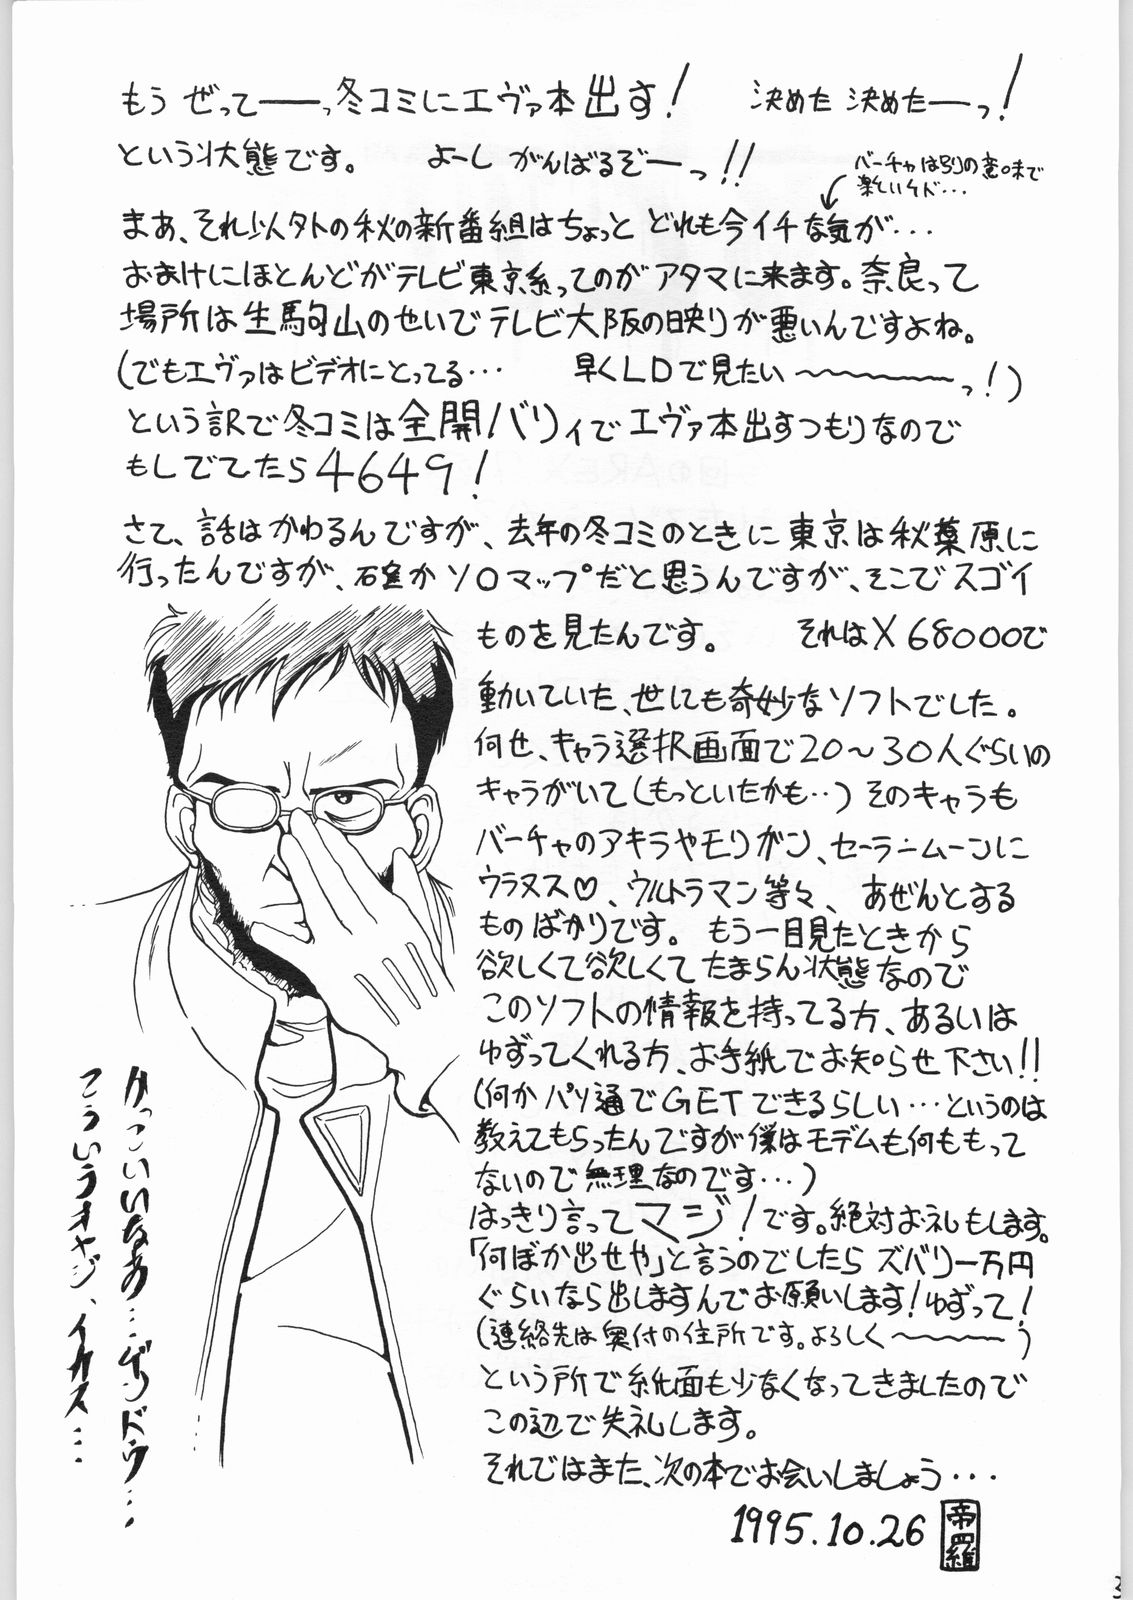 もう ぜって――っ冬コミにエヴァ本出す！ 決めた 決めた―っ！
という状態です。 よーし がんばるぞーっ！！
バーチャは別の意味で
楽しいケド・・・
まあ、それ以外の秋の新番組はちょっと どれも今イチな気が・・・
おまけにほとんどがテレビ東京系ってのがアタマに来ます。奈良って
場所は生駒山のせいでテレビ大阪の映りが悪いんですよね。
(でもエヴァはビデオにとってる・・・ 早くLDで見たい～～～～っ！)
という訳で冬コミは全開バリィでエヴァ本出すつもりなので
もしでてたら4649！
さて、話はかわるんですが、去年の冬コミのときに東京は秋葉原に
行ったんですが、確かソロマップだと思うんですが、そこでスゴイ
ものを見たんです。 それはX68000で
動いていた、世にも奇妙なソフトでした。
何せ、キャラ選択画面で20～30人ぐらいの
キャラがいて(もっといたかも・・)そのキャラも
バーチャのアキラやモリガン、セーラームーンに
ウラヌス♡、ウルトラマン等々、あぜんとする
ものばかりです。 もう一目見たときから
欲しくて欲しくてたまらん状態なので
このソフトの情報を持ってる方、あるいは
ゆずってくれる方、お手紙でお知らせ下さい！！
(何かパソ通でGETできるらしい・・・というのは
教えてもらったんですが僕はモデムも何ももって
ないので無理なのです・・・)
はっきり言ってマジ！です。絶対お礼もします。
「何ぼか出せや」と言うのでしたら ズバリ一万円
ぐらいなら出しますんでお願いします！ゆずって！
(連絡先は奥付の住所です。よろしく～～～～)
という所で紙面も少なくなってきましたので
この辺で失礼します。
それではまた、次の本でお会いしましょう・・・
1995.10.26
帝羅
かっこいいなあ・・・ゲンドウ・・・
こういうオヤジ、イカス・・・
3